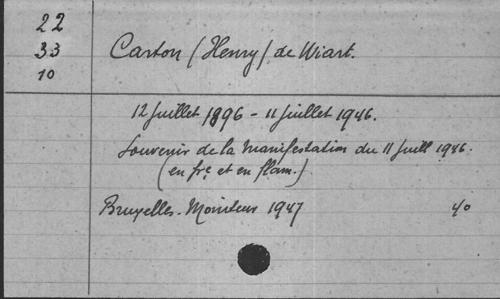 22
33
10
Carton (Henry) de Wiart.
12 Juillet 1896 - 11 Juillet 1946.
Souvenir de la Manifestation du 11 Juill 1946.
(en frç et en flam.)
Bruxelles. Moniteur 1947 40